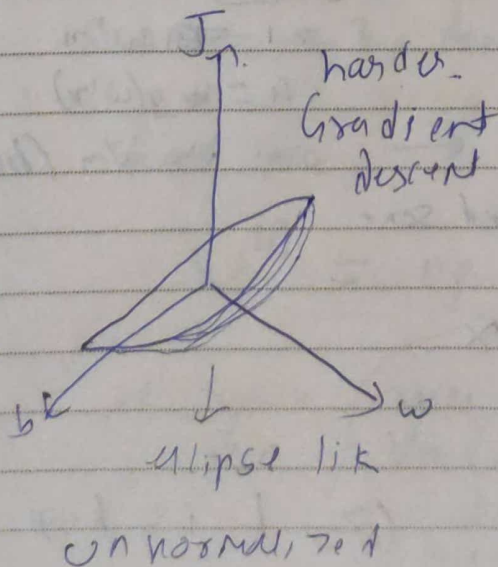 J
harder
Gradient
descent
b
w
ellipse lik
unnormalized